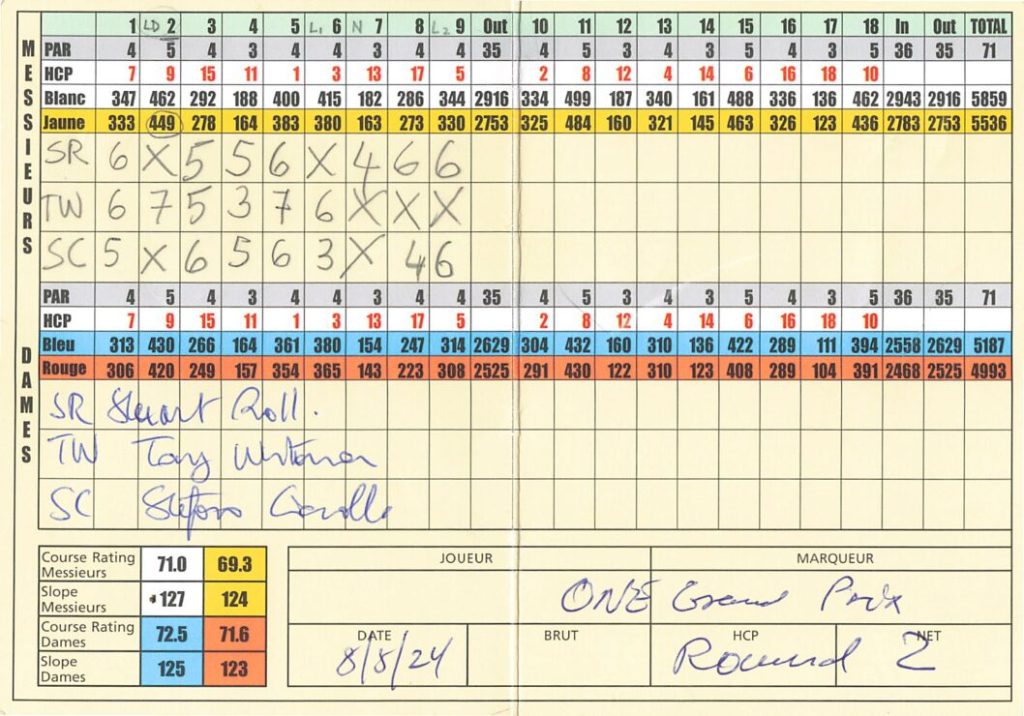 1 LD 2 3 4 5 L1 6 N 7 8 L2 9 Out 10 11 12 13 14 15 16 17 18 In Out TOTAL
MESSIEURS
PAR 4 5 4 3 4 4 3 4 4 35 4 5 3 4 3 5 4 3 5 36 35 71
HCP 7 9 15 11 1 3 13 17 5 2 8 12 4 14 6 16 18 10
Blanc 347 462 292 188 400 415 182 286 344 2916 334 499 187 340 161 488 336 136 462 2943 2916 5859
Jaune 333 449 278 164 383 380 163 273 330 2753 325 484 160 321 145 463 326 123 436 2783 2753 5536
SR 6 X 5 5 6 X 4 6 6
TW 6 7 5 3 7 6 X X X
SC 5 X 6 5 6 3 X 4 6
PAR 4 5 4 3 4 4 3 4 4 35 4 5 3 4 3 5 4 3 5 36 35 71
HCP 7 9 15 11 1 3 13 17 5 2 8 12 4 14 6 16 18 10
DAMES
Bleu 313 430 266 164 361 380 154 247 314 2629 304 432 160 310 136 422 289 111 394 2558 2629 5187
Rouge 306 420 249 157 354 365 143 223 308 2525 291 430 122 310 123 408 289 104 391 2468 2525 4993
SR Stuart Roll.
TW Tony
SC Stefano
Course Rating Messieurs 71.0 69.3
Slope Messieurs 127 124
Course Rating Dames 72.5 71.6
Slope Dames 125 123
JOUEUR MARQUEUR
ONE Grand Prix
DATE BRUT HCP NET
8/8/24 Round 2